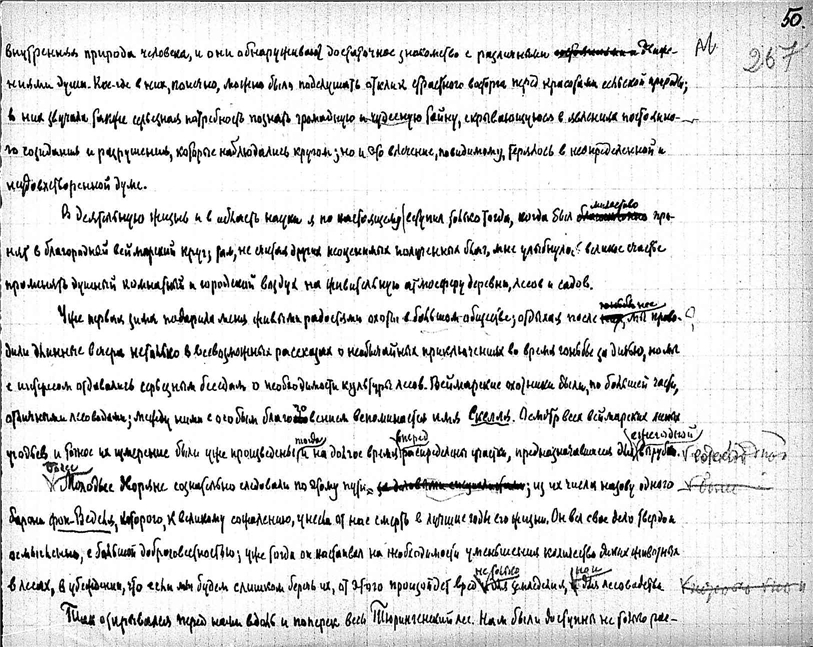 50.
267
внутренняя природа человека, и они обнаруживают достаточное знакомство с различными движе-
ниями души. Кое-где в них, конечно, можно было подслушать отклик страстного восторга перед красотами сельской природы;
в них звучала также серьезная потребность познать громадную и чудесную тайну, скрывающуюся в явлениях постоянно-
го созидания и разрушения, которые наблюдались кругом; но и это влечение, повидимому, терялось в неопределенной и
неудовлетворенной думе.
В деятельную жизнь и в область науки я по настоящему вступил только тогда, когда был милостиво при-
нят в благородный веймарский круг; там, не считая других неоценимых полученных благ, мне улыбнулось великое счастье
променять душный комнатный и городской воздух на живительную атмосферу деревни, лесов и садов.
Уже первая зима подарила меня живыми радостями охоты в большом обществе; отдыхая после мы прово-
дили длинные вечера не только в всевозможных рассказах о необычайных приключениях во время погони за дичью, но мы
с интересом отдавались серьезным беседам о необходимости культуры лесов. Веймарские охотники были, по большей части,
отличными лесоводами; между ними с особым благоговением вспоминается имя Скелля. Осмотр всех веймарских лесных
угодьев и точное их измерение были уже произведены тогда и на долгое время вперед распределены участки, предназначавшиеся для ежегодной вырубки.
Молодые дворяне сознательно следовали по этому пути; из их числа назову одного
барона фон Веделя, которого, к великому сожалению, унесла от нас смерть в лучшие годы его жизни. Он вел свое дело твердо и
осмысленно, с большой добросовестностью; уже тогда он настаивал на необходимости уменьшения количества диких животных
в лесах, в убеждении, что если мы будем слишком беречь их, от этого произойдет вред не только для земледелия, но и для лесоводства
Так открывался перед нами вдоль и поперек весь Тюрингенский лес. Нам были доступны не только рас-